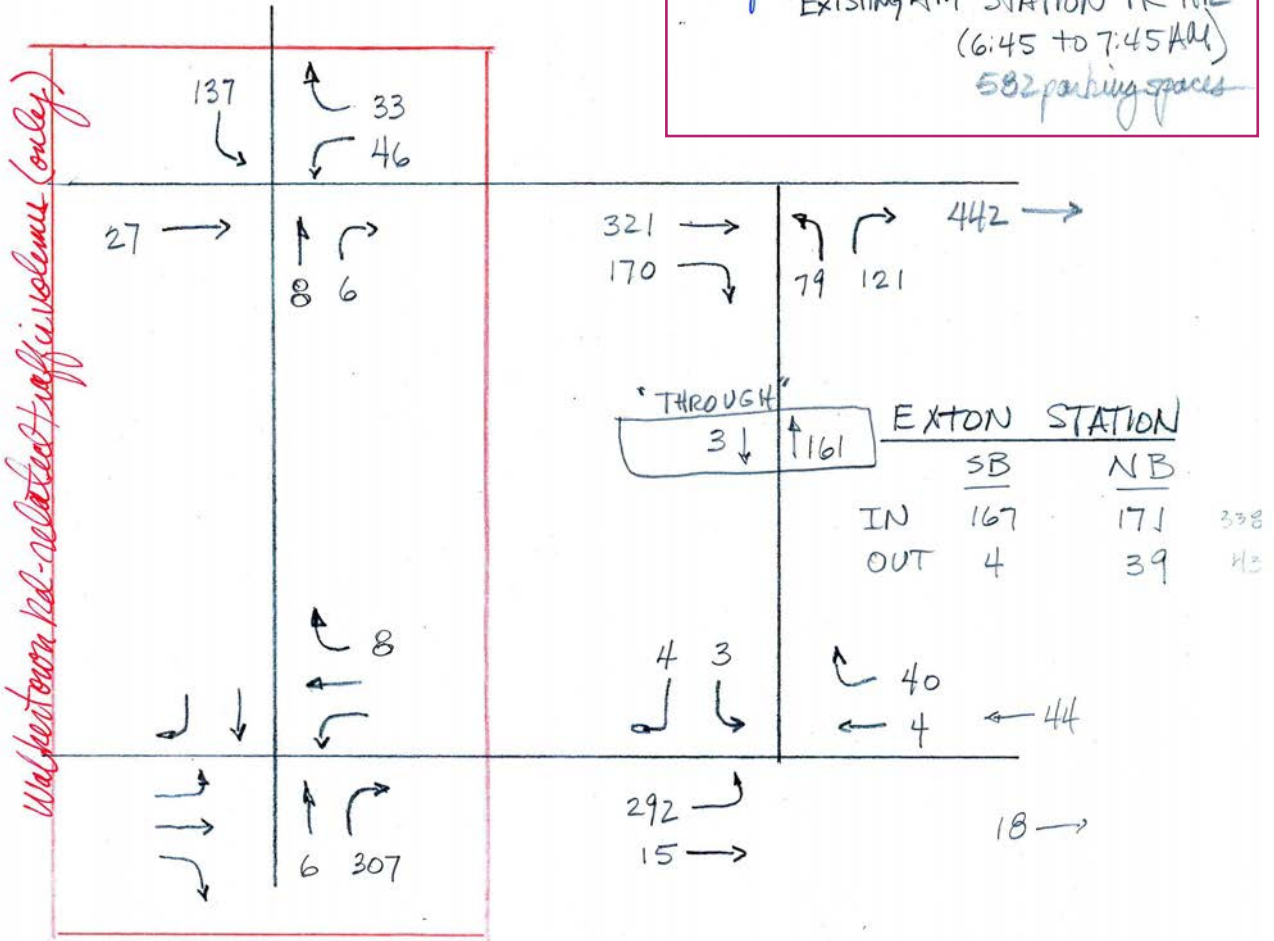 EXISTING AM STATION PK HR
(6:45 to 7:45 AM)
582 parking spaces
Walkertown Rd-related traffic volumes (only)
137
33
46
27
8 6
321
170
79 121
442
"THROUGH"
3 161
EXTON STATION
SB NB
IN 167 171 338
OUT 4 39 43
8
4 3
40
4
44
6 307
292
15
18